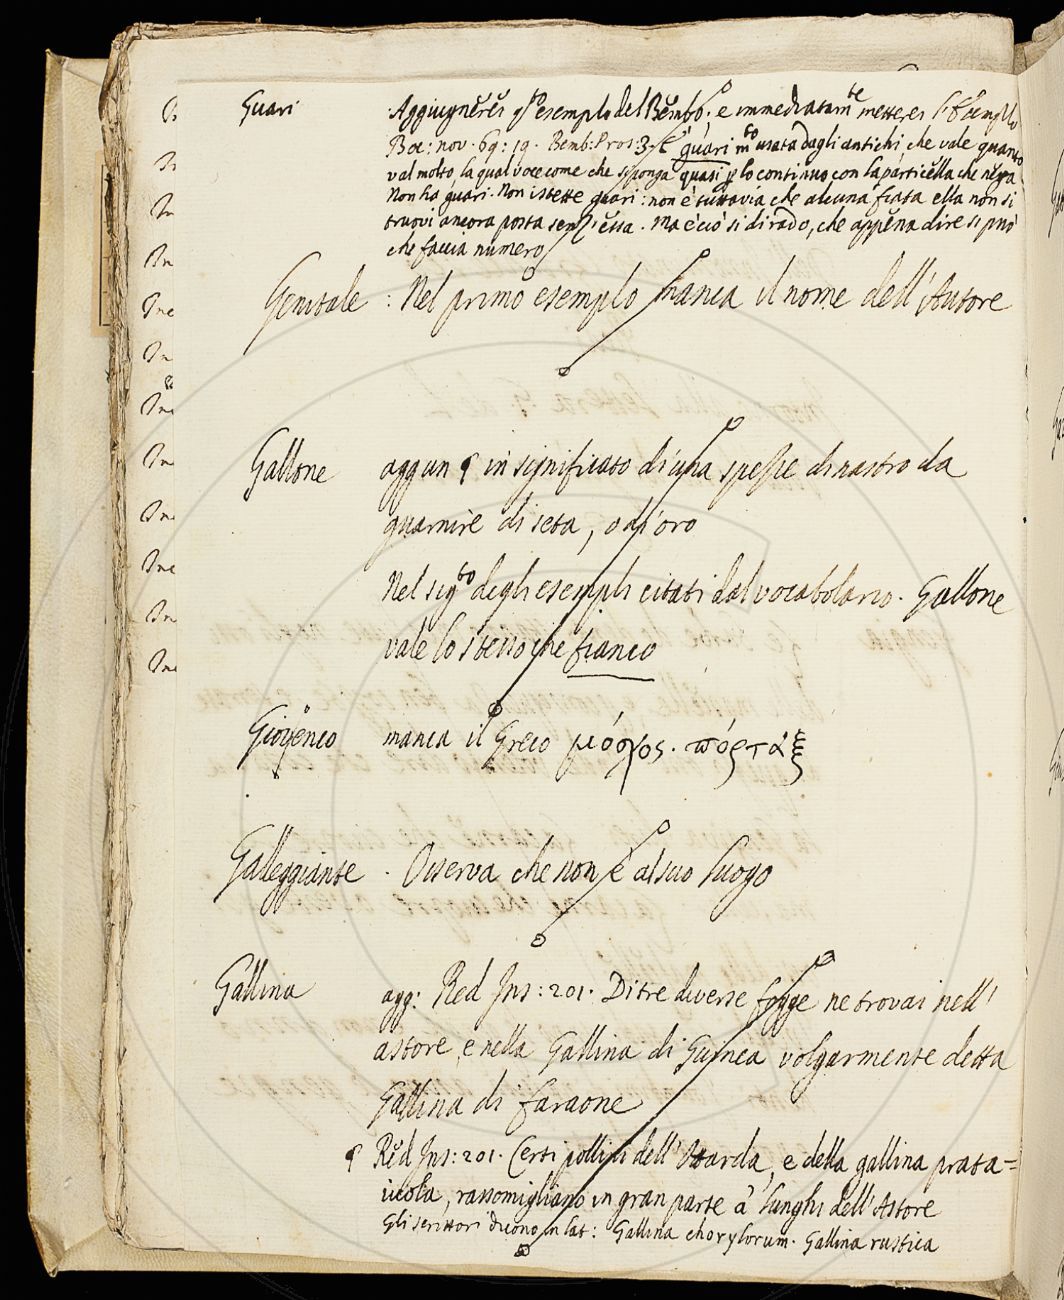 Guari Aggiugnerei q.to esempio del Bembo. e immediatam.te mettere l'esemplo
Boc: nov. 69: 19. Bemb: Pros: 3. È guari m.to usata dagli antichi, che vale quanto
val molto la qual voce come che si ponga quasi p lo continuo con la particella che niega
Non ha guari. Non istette guari: non è tuttavia che alcuna fiata ella non si
truovi ancora posta senz'essa. Ma è ciò sì di rado, che appena dire si può
che faccia numero
Genitale : Nel primo esemplo manca il nome dell'Autore
Gallone aggun ¶ in significato di una spezie di nastro da
guarnire di seta, o d'oro
Nel sig.to degli esempli citati dal vocabolario. Gallone
vale lo stesso che fianco
Giovenco manca il Greco μόσχος. πόρταξ
Galleggiante . Osserva che non è al suo luogo
Gallina agg: Red Ins: 201. Di tre diverse fogge ne trovai nell'
astore, e nella Gallina di Guinea volgarmente detta
Gallina di faraone
¶ Red Ins: 201. Certi pollini dell'Starda, e della gallina prata=
iuola, rassomigliano in gran parte a' lunghi dell'Astore
Gli scrittori dicono in lat: Gallina chorylorum. Gallina rustica